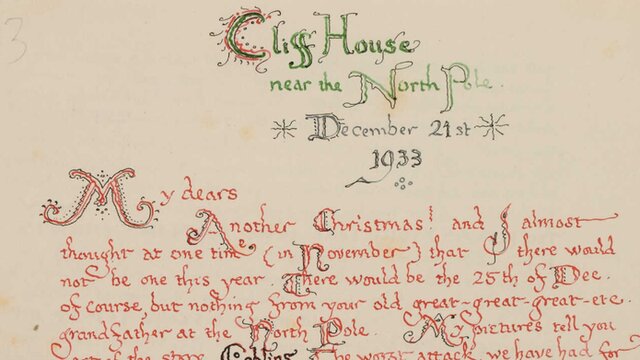 3
Cliff House
near the North Pole
December 21st
1933
My dears
Another Christmas! and I almost
thought at one time (in November) that there would
not be one this year. There would be the 25th of Dec.
of course, but nothing from your old great-great-great-etc.
grandfather at the North Pole. My pictures tell you
part of the story. Goblins. The worst attack we have had for